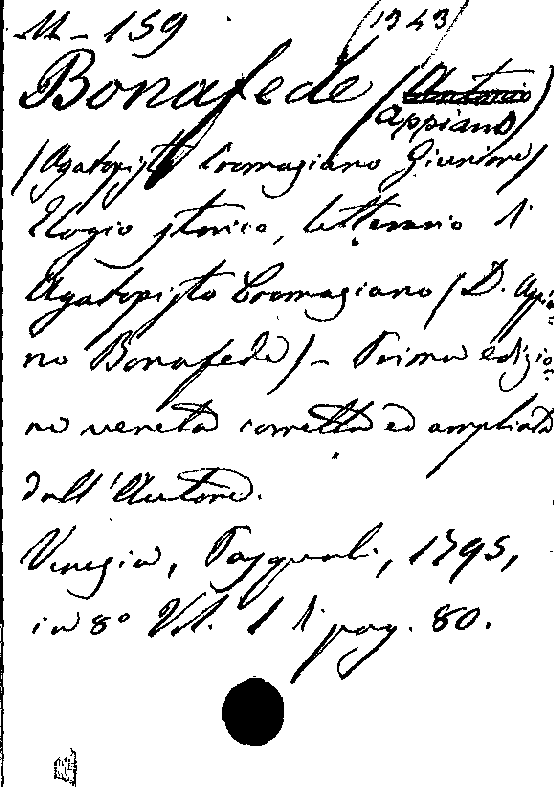 M - 159 (1343)
Bonafede (Antonio)
Appiano)
(Agatopisto Cromaziano Giuniore)
Elogio storico, letterario di
Agatopisto Cromaziano (D. Appia=
no Bonafede) - Prima edizio=
ne veneta corretta ed ampliata
dall'Autore.
Venezia, Pasquali, 1795,
in 8° Vol. 1 di pag. 80.